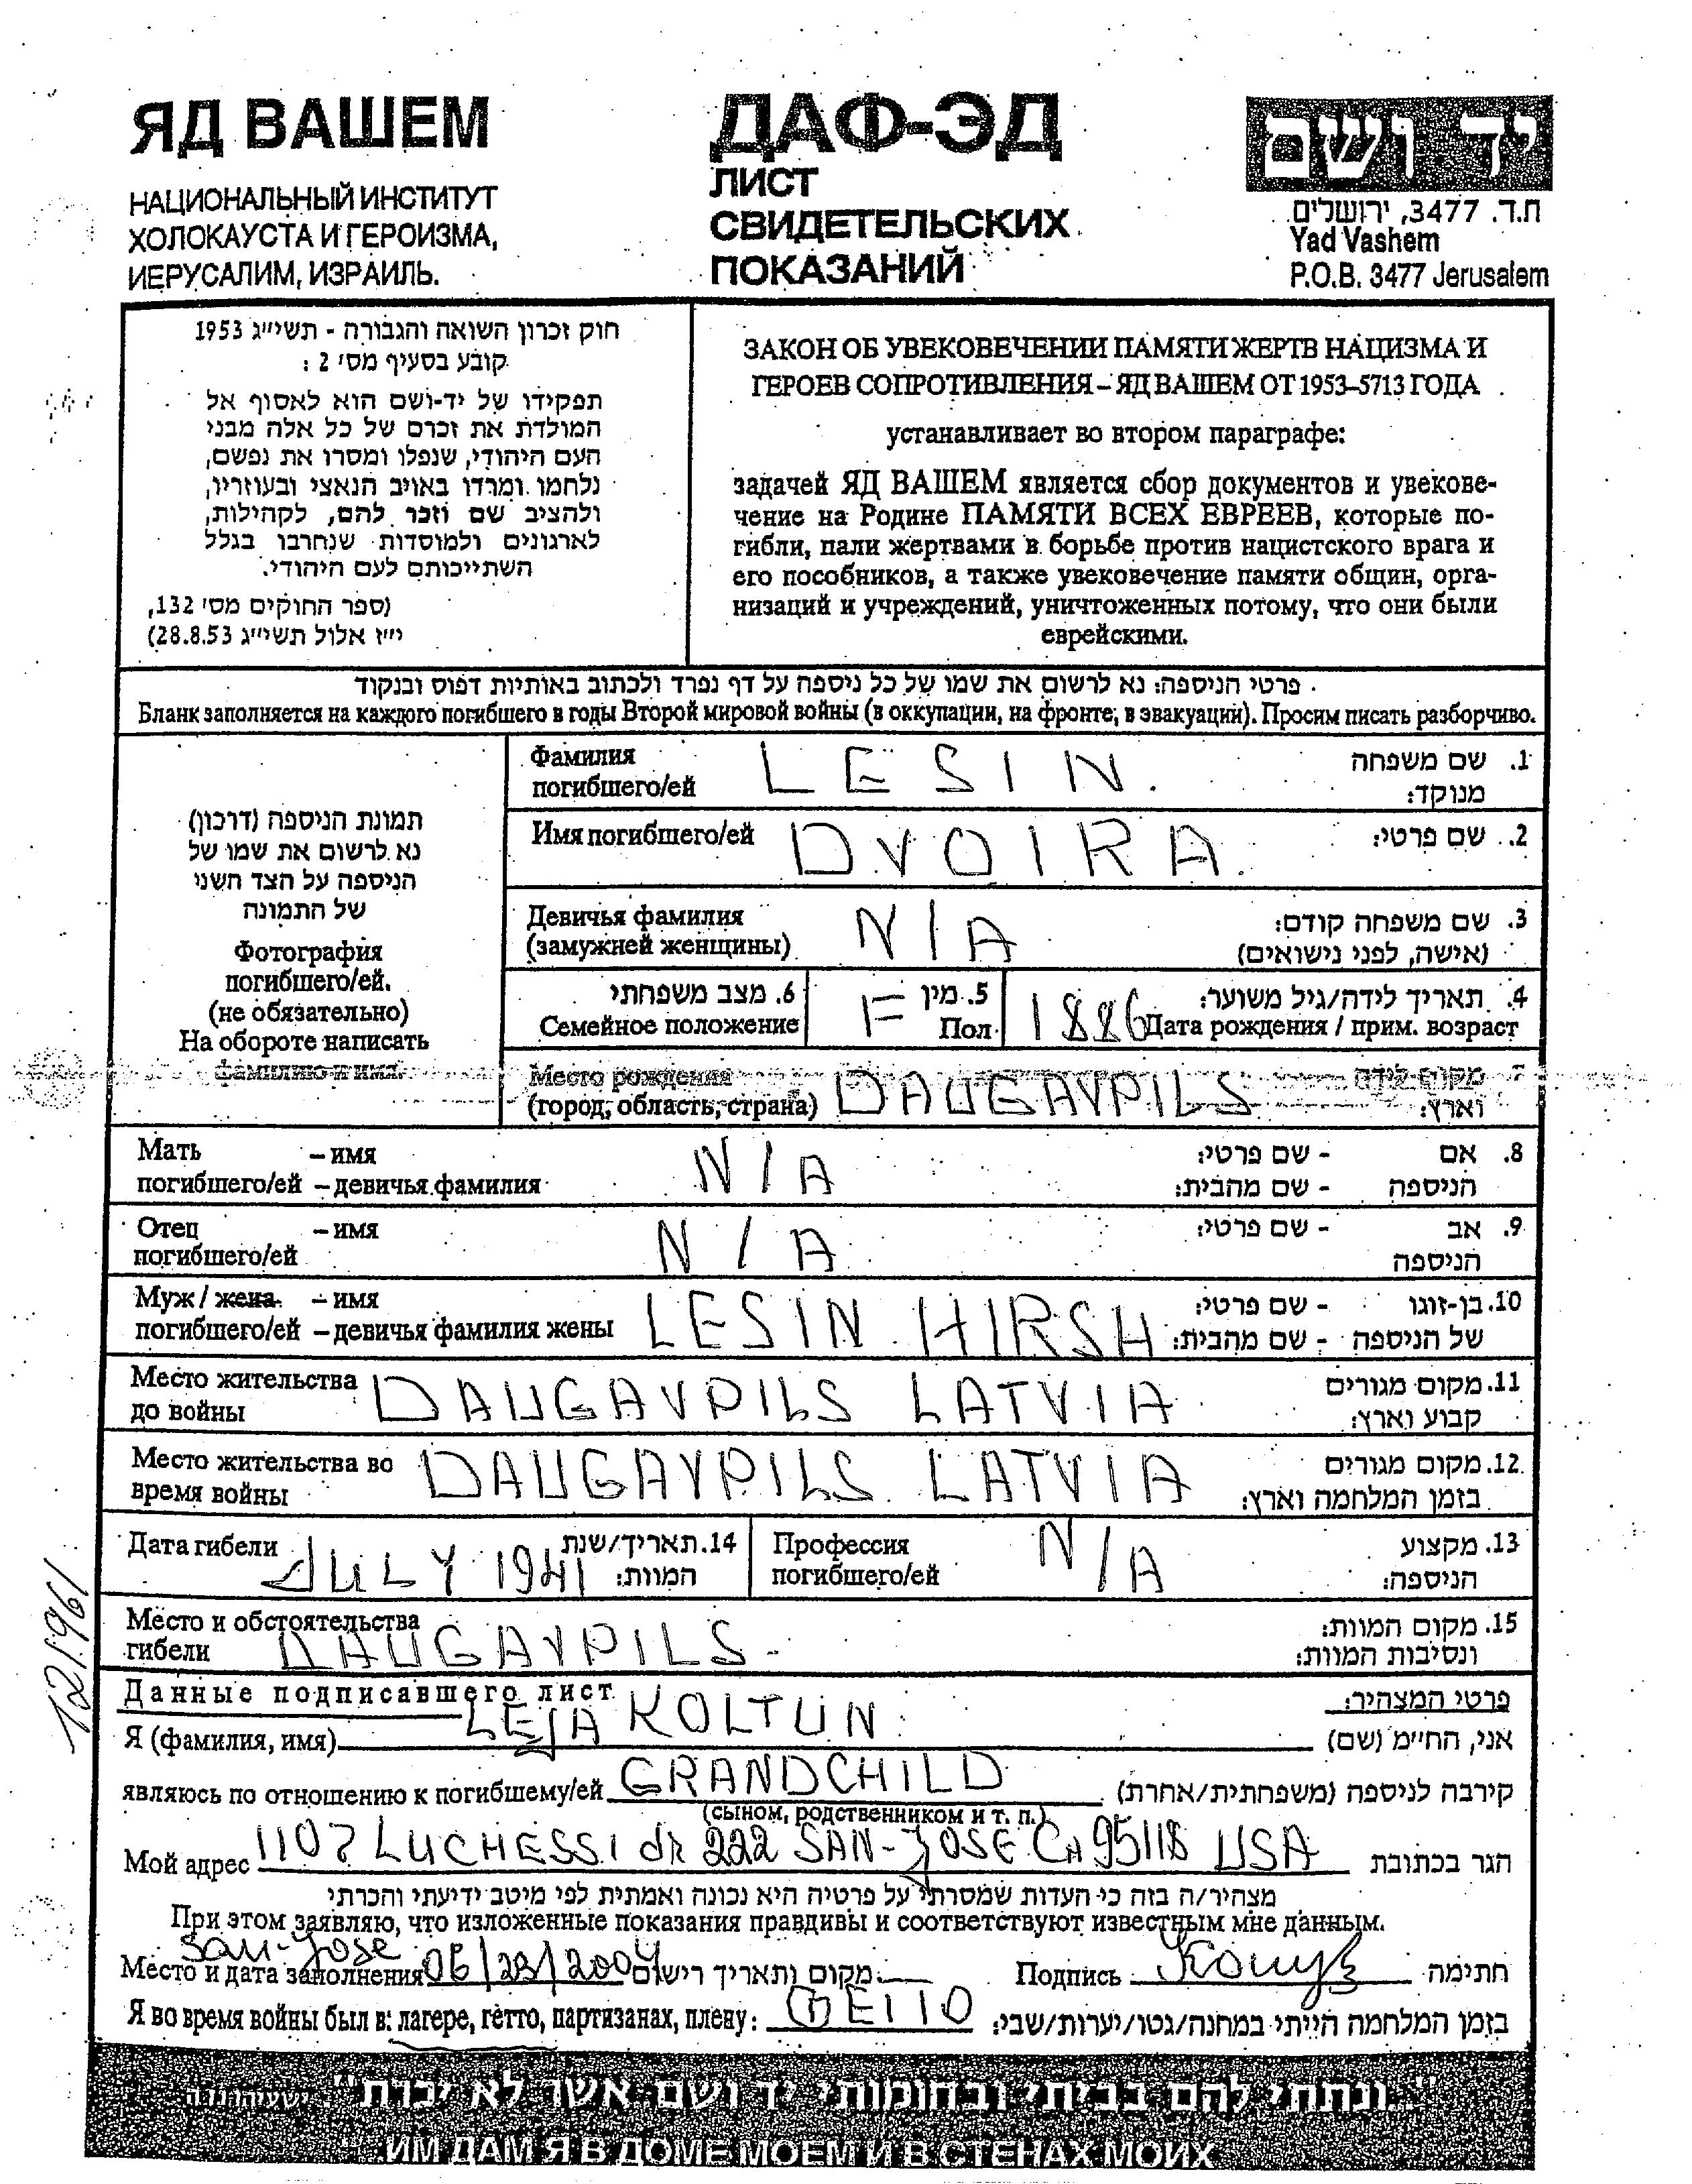 ЯД ВАШЕМ
НАЦИОНАЛЬНЫЙ ИНСТИТУТ
ХОЛОКАУСТА И ГЕРОИЗМА,
ИЕРУСАЛИМ, ИЗРАИЛЬ.
ДАФ-ЭД
ЛИСТ
СВИДЕТЕЛЬСКИХ
ПОКАЗАНИЙ
יד ושם
ת.ד. 3477, ירושלים
Yad Vashem
P.O.B. 3477 Jerusalem
חוק זכרון השואה והגבורה - תשי״ג 1953
קובע בסעיף מס׳ 2 :
תפקידו של יד-ושם הוא לאסוף אל
המולדת את זכרם של כל אלה מבני
העם היהודי, שנפלו ומסרו את נפשם,
נלחמו ומרדו באויב הנאצי ובעוזריו,
ולהציב שם וזכר להם, לקהילות,
לארגונים ולמוסדות שנחרבו בגלל
השתייכותם לעם היהודי.
(ספר החוקים מס׳ 132,
י״ז אלול תשי״ג 28.8.53)
ЗАКОН ОБ УВЕКОВЕЧЕНИИ ПАМЯТИ ЖЕРТВ НАЦИЗМА И
ГЕРОЕВ СОПРОТИВЛЕНИЯ – ЯД ВАШЕМ ОТ 1953–5713 ГОДА
устанавливает во втором параграфе:
задачей ЯД ВАШЕМ является сбор документов и увекове-
чение на Родине ПАМЯТИ ВСЕХ ЕВРЕЕВ, которые по-
гибли, пали жертвами в борьбе против нацистского врага и
его пособников, а также увековечение памяти общин, орга-
низаций и учреждений, уничтоженных потому, что они были
еврейскими.
פרטי הניספה: נא לרשום את שמו של כל ניספה על דף נפרד ולכתוב באותיות דפוס ובנקוד
Бланк заполняется на каждого погибшего в годы Второй мировой войны (в оккупации, на фронте, в эвакуации). Просим писать разборчиво.
תמונת הניספה (דרכון)
נא לרשום את שמו של
הניספה על הצד השני
של התמונה
Фотография
погибшего/ей.
(не обязательно)
На обороте написать
фамилию и имя.
Фамилия LESIN. 1. שם משפחה
погибшего/ей מנוקד:
Имя погибшего/ей DVOIRA. 2. שם פרטי:
Девичья фамилия N/A 3. שם משפחה קודם:
(замужней женщины) (אישה, לפני נישואים)
6. מצב משפחתי
Семейное положение
5. מין F
Пол
4. תאריך לידה/גיל משוער:
1886 Дата рождения / прим. возраст
Место рождения 7. מקום לידה
(город, область, страна) DAUGAVPILS וארץ:
Мать – имя N/A 8. אם - שם פרטי:
погибшего/ей – девичья фамилия הניספה - שם מהבית:
Отец – имя N/A 9. אב - שם פרטי:
погибшего/ей הניספה
Муж / жена – имя LESIN HIRSH 10. בן-זוגו - שם פרטי:
погибшего/ей – девичья фамилия жены של הניספה - שם מהבית:
Место жительства DAUGAVPILS LATVIA 11. מקום מגורים
до войны קבוע וארץ:
Место жительства во DAUGAVPILS LATVIA 12. מקום מגורים
время войны בזמן המלחמה וארץ:
Дата гибели JULY 1941 14. תאריך/שנת
המוות:
Профессия N/A 13. מקצוע
погибшего/ей הניספה:
Место и обстоятельства 15. מקום המוות:
гибели DAUGAVPILS- ונסיבות המוות:
12196/
Данные подписавшего лист פרטי המצהיר:
Я (фамилия, имя) LEJA KOLTUN אני, החי״מ (שם)
являюсь по отношению к погибшему/ей GRANDCHILD קירבה לניספה (משפחתית/אחרת)
(сыном, родственником и т. п.)
Мой адрес 1107 LUCHESSI dR 222 SAN-JOSE CA 95118 USA הגר בכתובת
מצהיר/ה בזה כי העדות שמסרתי על פרטיה היא נכונה ואמתית לפי מיטב ידיעתי והכרתי
При этом заявляю, что изложенные показания правдивы и соответствуют известным мне данным.
San-Jose
Место и дата заполнения 06/29/2004 מקום ותאריך רישום Подпись חתימה
Я во время войны был в: лагере, гетто, партизанах, плену: GETTO בזמן המלחמה הייתי במחנה/גטו/יערות/שבי:
"ונתתי להם בביתי ובחומותי יד ושם אשר לא יכרת"
ИМ ДАМ Я В ДОМЕ МОЕМ И В СТЕНАХ МОИХ